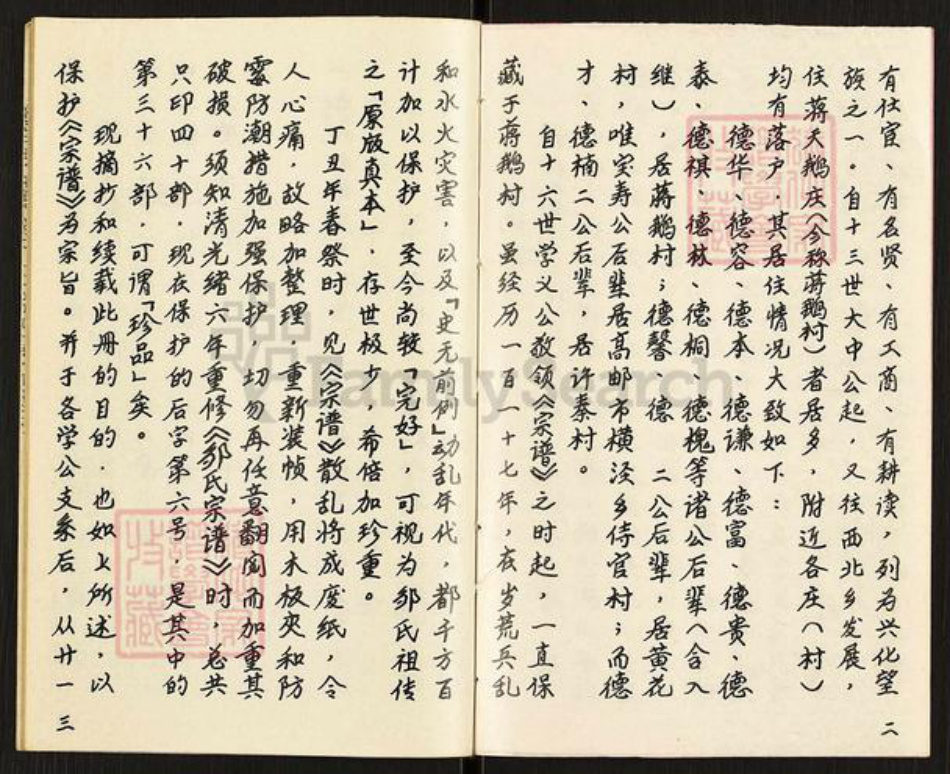 有仕宦、有名贤、有工商、有耕读，列为兴化望
族之一。自十三世大中公起，又往西北乡发展，
住蒋天鹅庄（今称蒋鹅村）者居多，附近各庄（村）
均有落户，其居住情况大致如下：
德华、德容、德本、德谦、德富、德贵、德
泰、德祺、德林、德桐、德槐等诸公后辈（含入
继），居蒋鹅村；德馨、德 二公后辈，居黄花
村，唯宝寿公后辈居高邮市横泾乡侍官村；而德
才、德楠二公后辈，居许秦村。
自十六世学义公敬领《宗谱》之时起，一直保
藏于蒋鹅村。虽经历一百一十七年，在岁荒兵乱
二
和水火灾害，以及「史无前例」动乱年代，都千方百
计加以保护，至今尚较「完好」，可视为邹氏祖传
之「原版真本」，存世极少，希倍加珍重。
丁丑年春祭时，见《宗谱》散乱将成废纸，令
人心痛，故略加整理，重新装帧，用木板夹和防
霉防潮措施加强保护，切勿再任意翻阅而加重其
破损。须知清光绪六年重修《邹氏宗谱》时，总共
只印四十部，现在保护的后字第六号，是其中的
第三十六部，可谓「珍品」矣。
现摘抄和续载此册的目的，也如上所述，以
保护《宗谱》为宗旨。并于各学公支系后，从廿一
三
FamilySearch